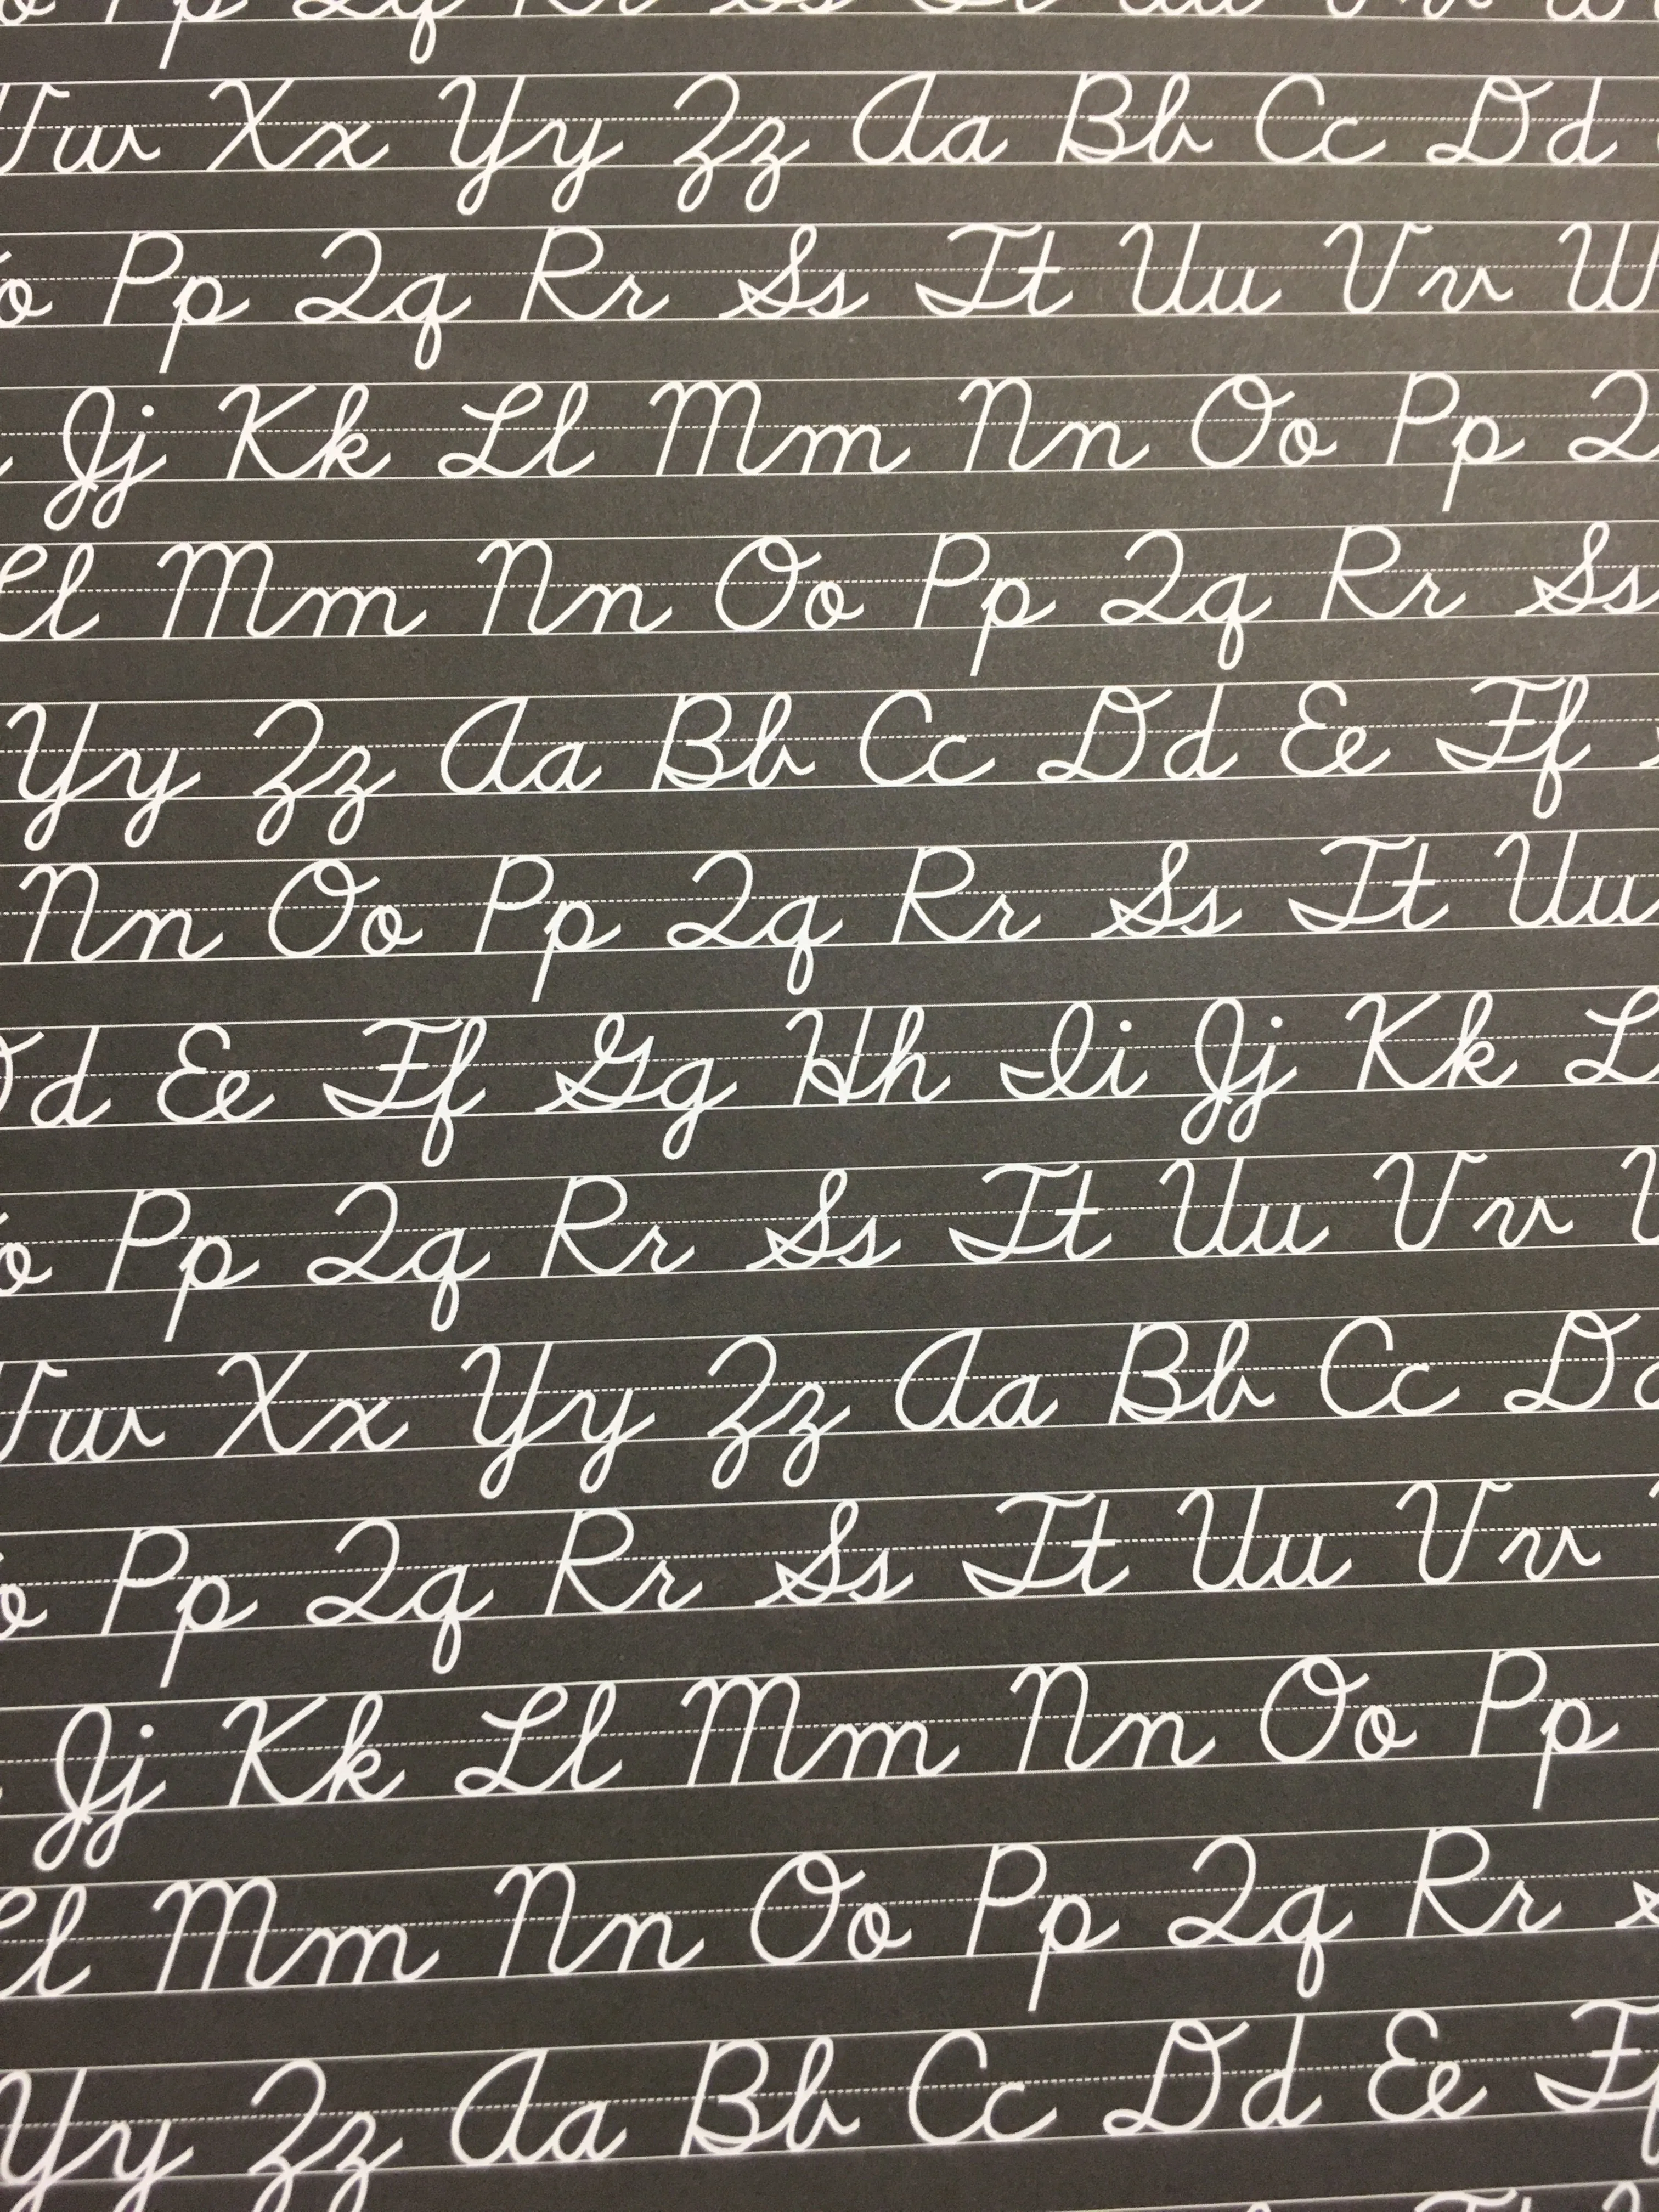 Pp Qq Rr Ss Tt Uu Vv W
Ww Xx Yy Zz Aa Bb Cc Dd
Oo Pp Qq Rr Ss Tt Uu Vv W
Jj Kk Ll Mm Nn Oo Pp Q
Ll Mm Nn Oo Pp Qq Rr Ss
Yy Zz Aa Bb Cc Dd Ee Ff
Nn Oo Pp Qq Rr Ss Tt Uu
Dd Ee Ff Gg Hh Ii Jj Kk L
Oo Pp Qq Rr Ss Tt Uu Vv
Ww Xx Yy Zz Aa Bb Cc Dd
Oo Pp Qq Rr Ss Tt Uu Vv
Jj Kk Ll Mm Nn Oo Pp
Ll Mm Nn Oo Pp Qq Rr
Yy Zz Aa Bb Cc Dd Ee Ff